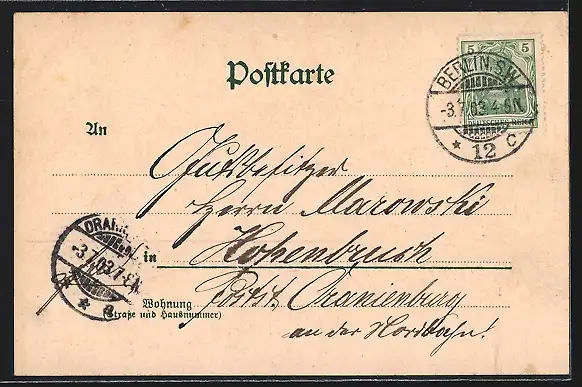 Postkarte
5 5
DEUTSCHES REICH
BERLIN SW
-3.7.03.4-5N.
* 12 c
An
Gutsbesitzer
Herrn Marowski
in Hohenbruch
Wohnung
(Straße und Hausnummer)
Postst. Oranienburg
an der Nordbahn!
ORANI
-3.7.03.7-8N.
* a